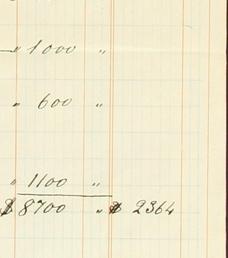 " 1000 "
" 600 "
" 1100 "
$ 8700 " $ 2364